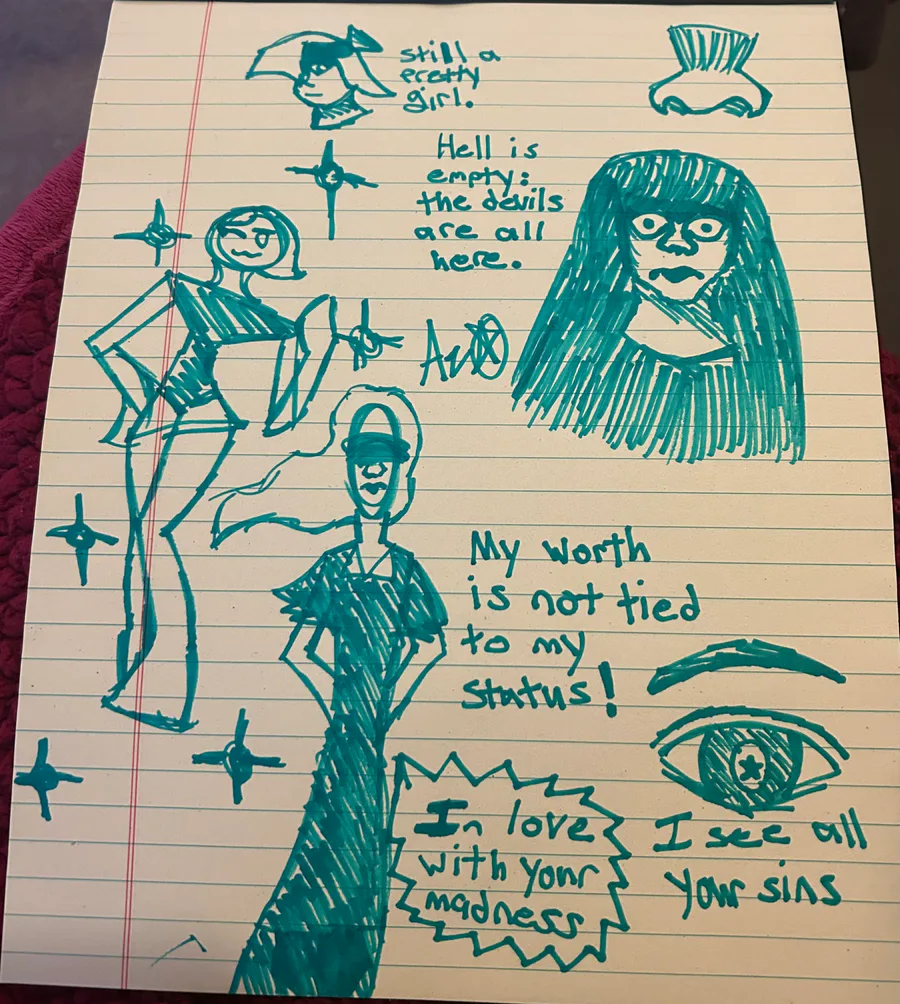 still a
pretty
girl.
Hell is
empty:
the devils
are all
here.
My worth
is not tied
to my
status!
In love
with your
madness
I see all
your sins